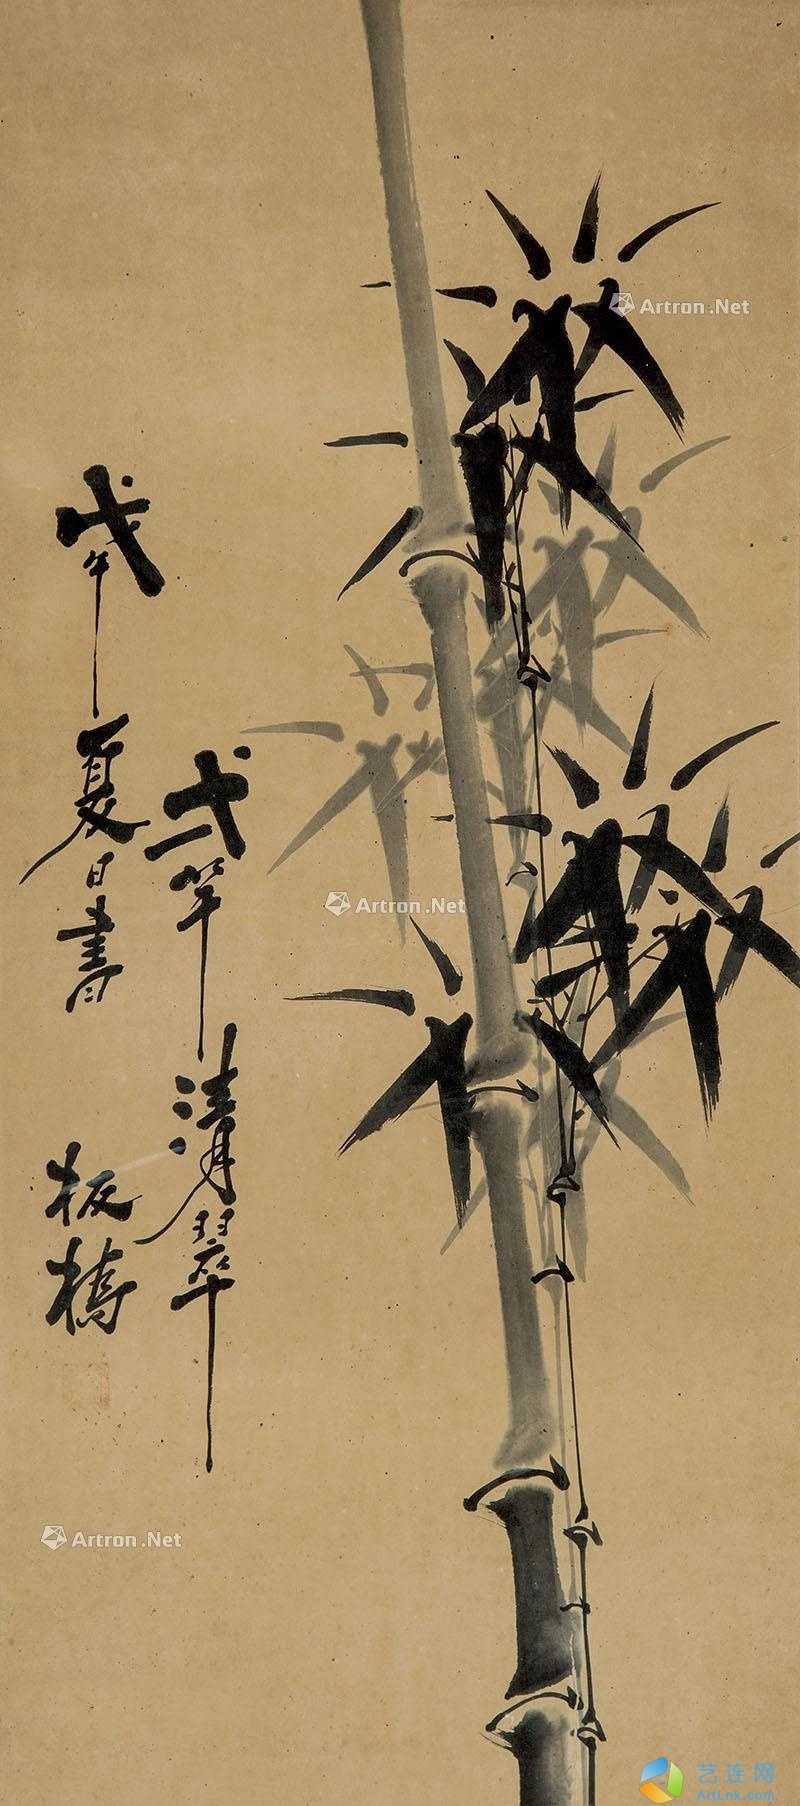 竿清翠
戊午夏日書
板橋
Artron.Net
Artron.Net
Artron.Net
艺连网
ArtLnk.com